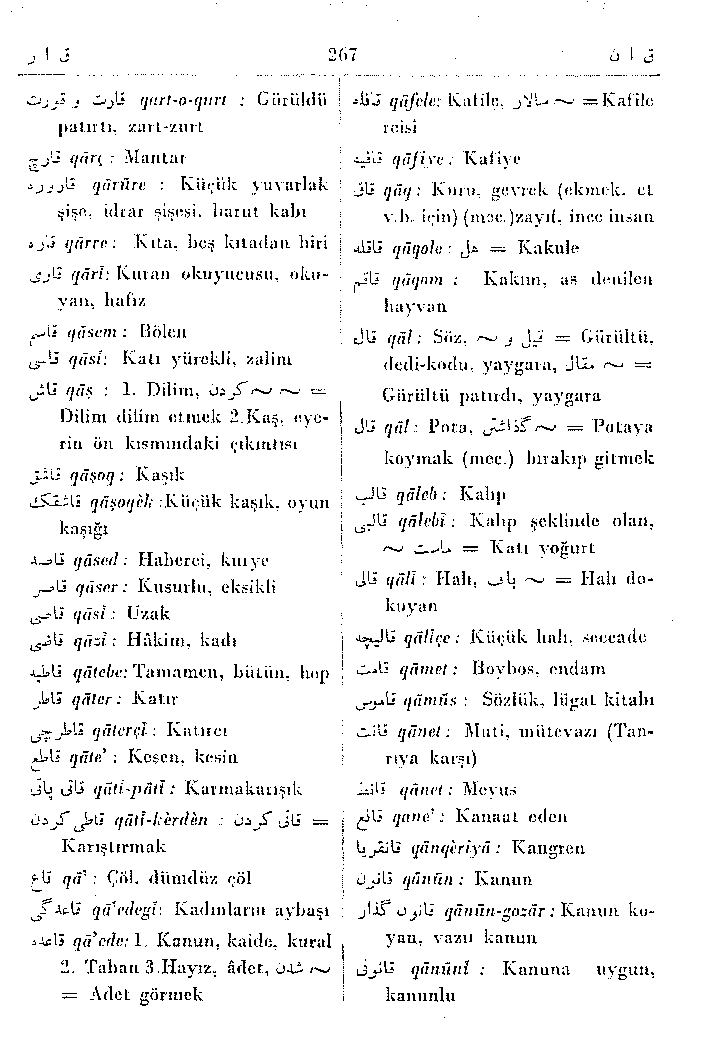 ق ا ر 267 ق ا ن
قارت و قورت qart-o-qurt : Gürüldü
patırtı, zart-zurt
قارچ qârç : Mantar
قاروره qârûre : Küçük yuvarlak
şişe, idrar şişesi, barut kabı
قاره qârre : Kıta, beş kıtadan biri
قاری qârî: Kuran okuyucusu, oku-
yan, hafız
قاسم qâsem : Bölen
قاسی qâsî: Katı yürekli, zalim
قاش qâş : 1. Dilim, ~ ~ کردن =
Dilim dilim etmek 2.Kaş, eye-
rin ön kısmındaki çıkıntısı
قاشق qâşoq : Kaşık
قاشقک qâşoqèk :Küçük kaşık, oyun
kaşığı
قاصد qâsed : Haberci, kurye
قاصر qâser : Kusurlu, eksikli
قاصی qâsî : Uzak
قاضی qâzî : Hâkim, kadı
قاطبه qâtebe: Tamamen, bütün, hep
قاطر qâter : Katır
قاطرچی qâterçî : Katırcı
قاطع qâte' : Kesen, kesin
قاتی پاتی qâti-pâtî : Karmakarışık
قاطی کردن qâtî-kèrdèn : قاتی کردن =
Karıştırmak
قاع qâ' : Çöl, dümdüz çöl
قاعدگی qâ'edegî: Kadınların aybaşı
قاعده qâ'ede: 1. Kanun, kaide, kural
2. Taban 3.Hayız, âdet, ~ شدن
= Adet görmek
قافله qâfele: Kafile, ~ سالار =Kafile
reisi
قافیه qâfiye : Kafiye
قاق qâq : Kuru, gevrek (ekmek, et
v.b. için) (mec.)zayıf, ince insan
قاقله qâqole : هل = Kakule
قاقم qâqom : Kakım, as denilen
hayvan
قال qâl : Söz, ~ و قیل = Gürültü,
dedi-kodu, yaygara, ~ مقال =
Gürültü patırdı, yaygara
قال qâl : Pota, ~ گذاشتن = Potaya
koymak (mec.) bırakıp gitmek
قالب qâleb : Kalıp
قالبی qâlebî : Kalıp şeklinde olan,
~ ماست = Katı yoğurt
قالی qâlî : Halı, ~ باف = Halı do-
kuyan
قالیچه qâlîçe : Küçük halı, seccade
قامت qâmet : Boybos, endam
قاموس qâmûs : Sözlük, lûgat kitabı
قانت qânet : Muti, mütevazı (Tan-
rıya karşı)
قانط qânet : Meyus
قانع qane' : Kanaat eden
قانقریا qânqèriyâ : Kangren
قانون qânûn : Kanun
قانون گذار qânûn-gozâr : Kanun ko-
yan, vazıı kanun
قانونی qânûnî : Kanuna uygun,
kanunlu